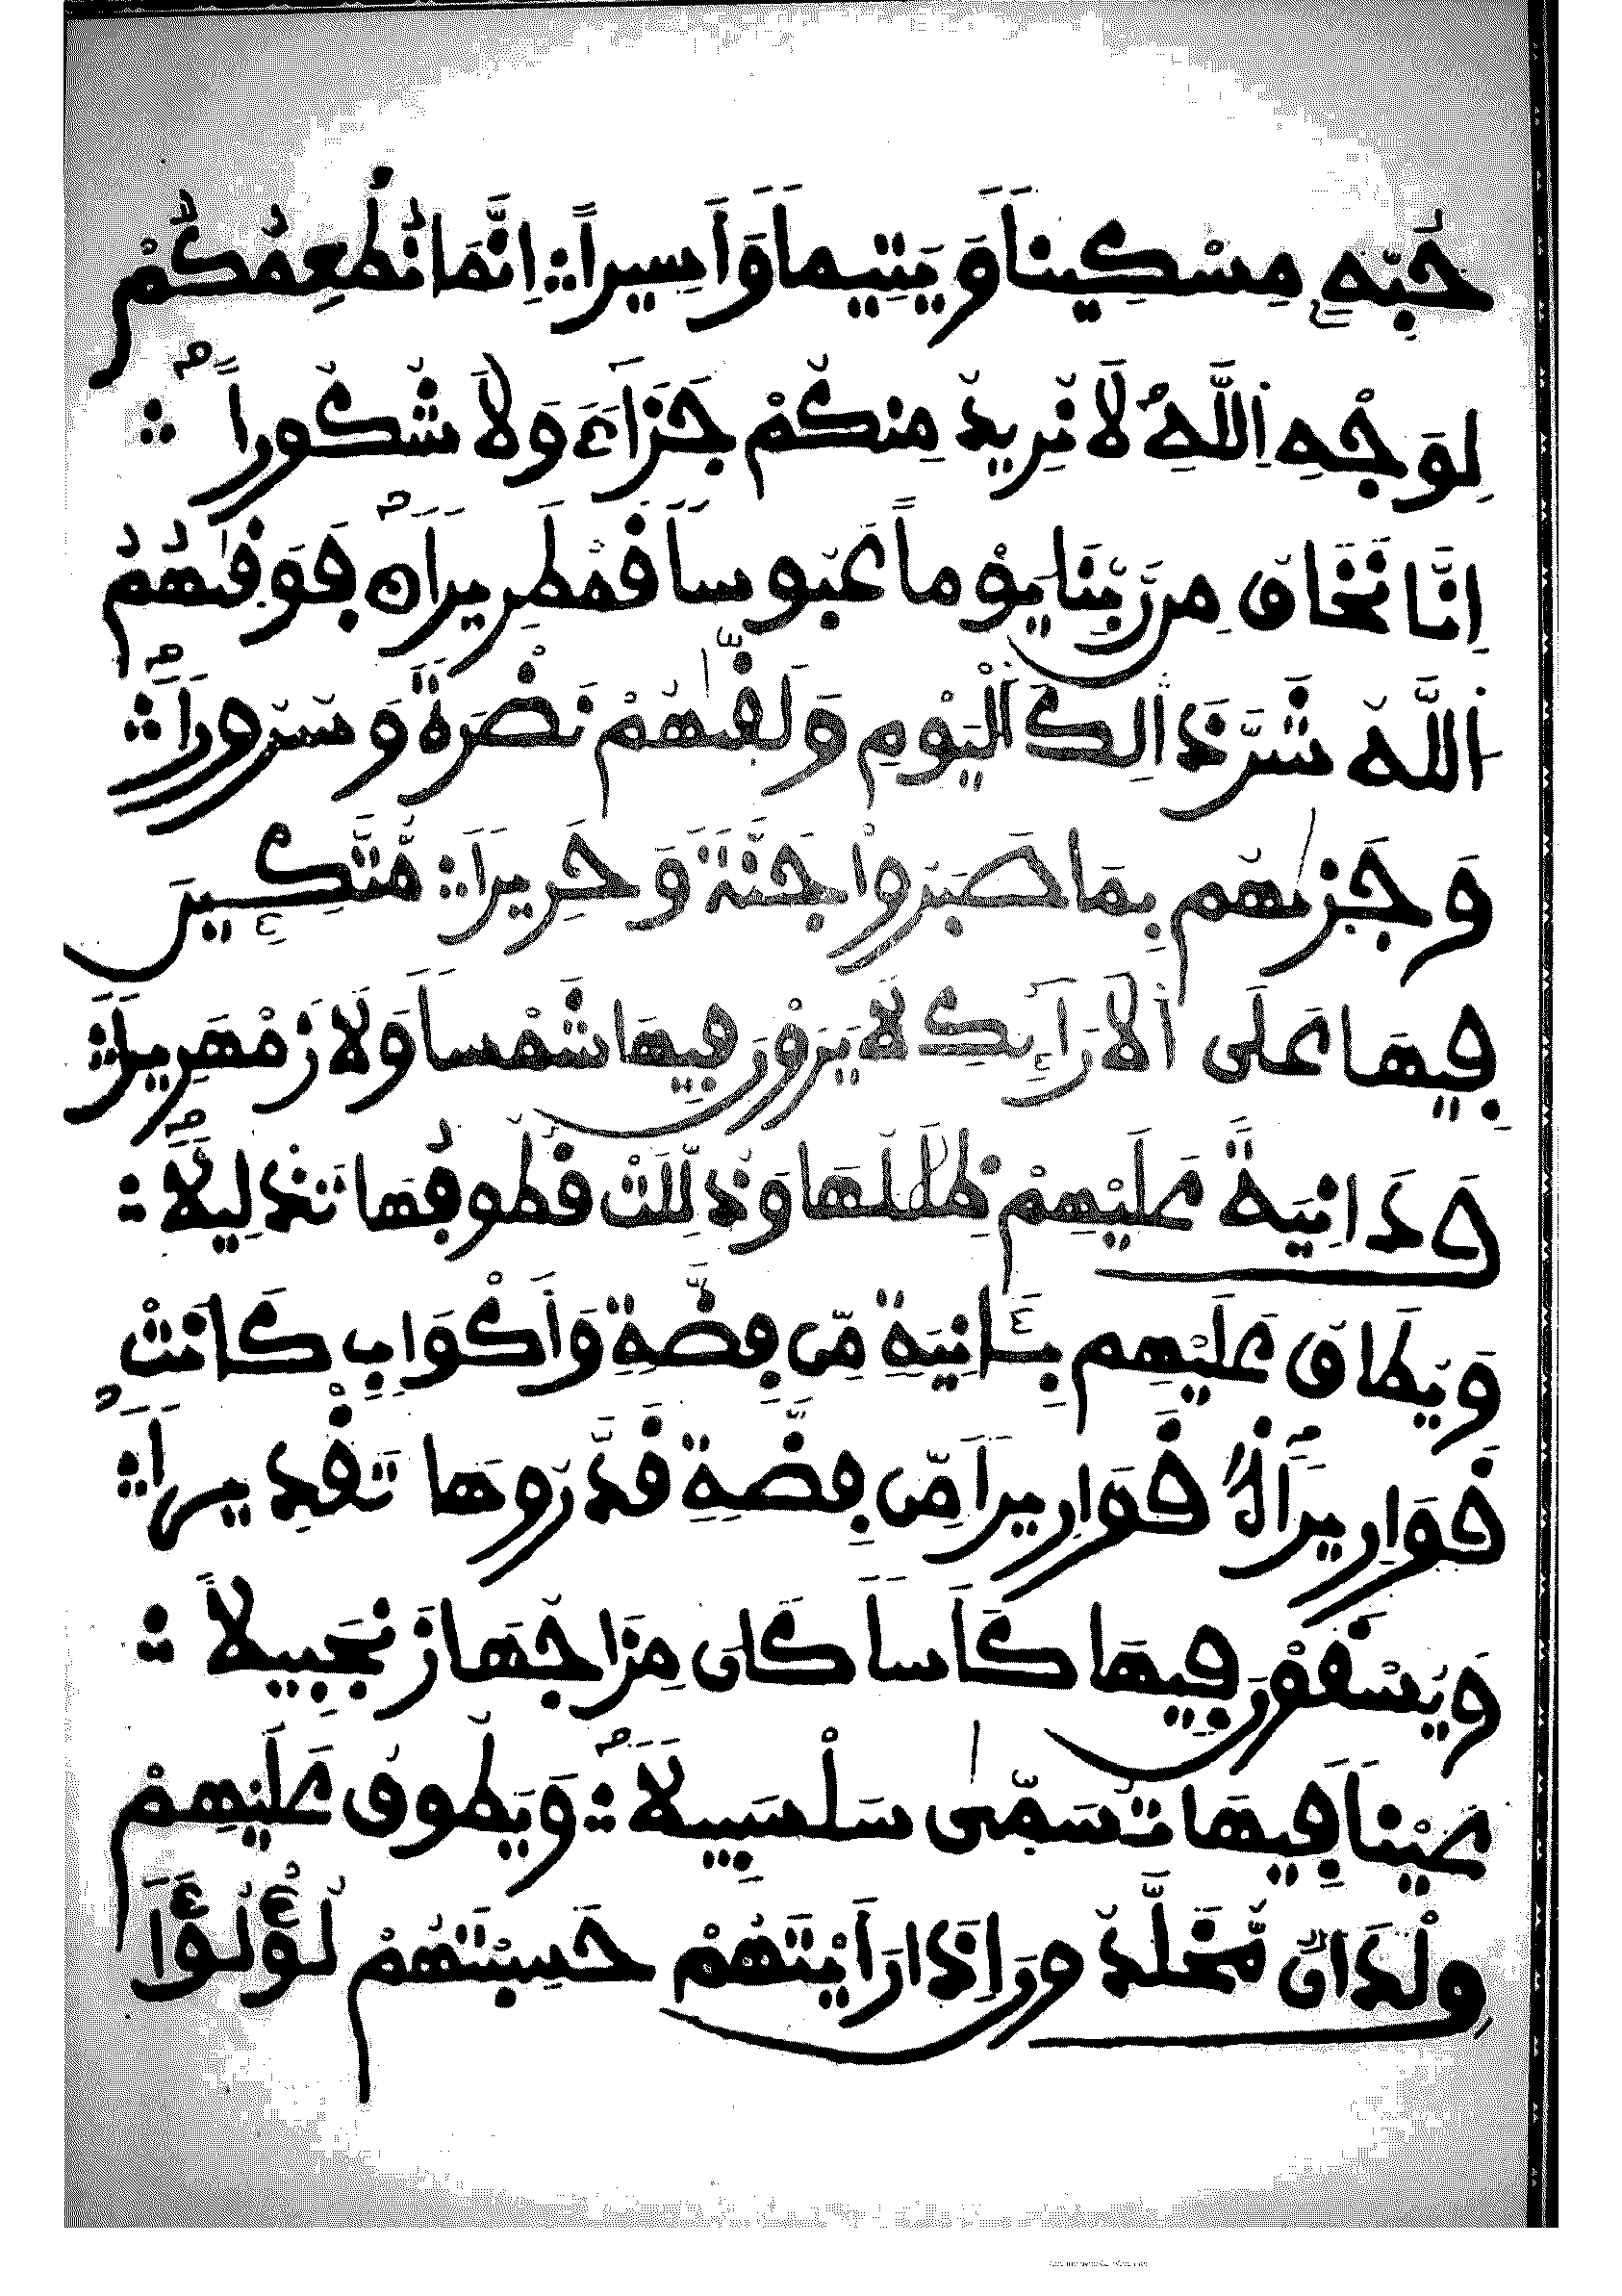 حُبِّهِۦ مِسْكِيناً وَيَتِيماً وَأَسِيراً ۝ اِنَّمَا نُطْعِمُكُمْ
لِوَجْهِ اِ۬للَّهِ لَا نُرِيدُ مِنكُمْ جَزَآءً وَلَا شُكُوراً ۝
اِنَّا نَخَافُ مِن رَّبِّنَا يَوْماً عَبُوساً قَمْطَرِيراً ۝ فَوَقٜىٰهُمُ
اُ۬للَّهُ شَرَّ ذَالِكَ اَ۬لْيَوْمِ وَلَقّٜىٰهُمْ نَضْرَةً وَسُرُوراً ۝
وَجَزٜىٰهُم بِمَا صَبَرُوا جَنَّةً وَحَرِيراً ۝ مُّتَّكِـِٕينَ
فِيهَا عَلَى اَ۬لَارَآئِكِ لَا يَرَوْنَ فِيهَا شَمْساً وَلَا زَمْهَرِيراً ۝
وَدَانِيَةً عَلَيْهِمْ ظِلَٰلُهَا وَذُلِّلَتْ قُطُوفُهَا تَذْلِيلاً ۝
وَيُطَافُ عَلَيْهِم بِـَٔانِيَةٍ مِّن فِضَّةٍ وَأَكْوَابٍ كَانَتْ
قَوَارِيراً ۝ قَوَارِيراً مِّن فِضَّةٍ قَدَّرُوهَا تَقْدِيراً ۝
وَيُسْقَوْنَ فِيهَا كَأْساً كَانَ مِزَاجُهَا زَنجَبِيلاً ۝
عَيْناً فِيهَا تُسَمّٜىٰ سَلْسَبِيلاً ۝ وَيَطُوفُ عَلَيْهِمْ
وِلْدَانٌ مُّخَلَّدُونَ إِذَا رَأَيْتَهُمْ حَسِبْتَهُمْ لُؤْلُؤاً